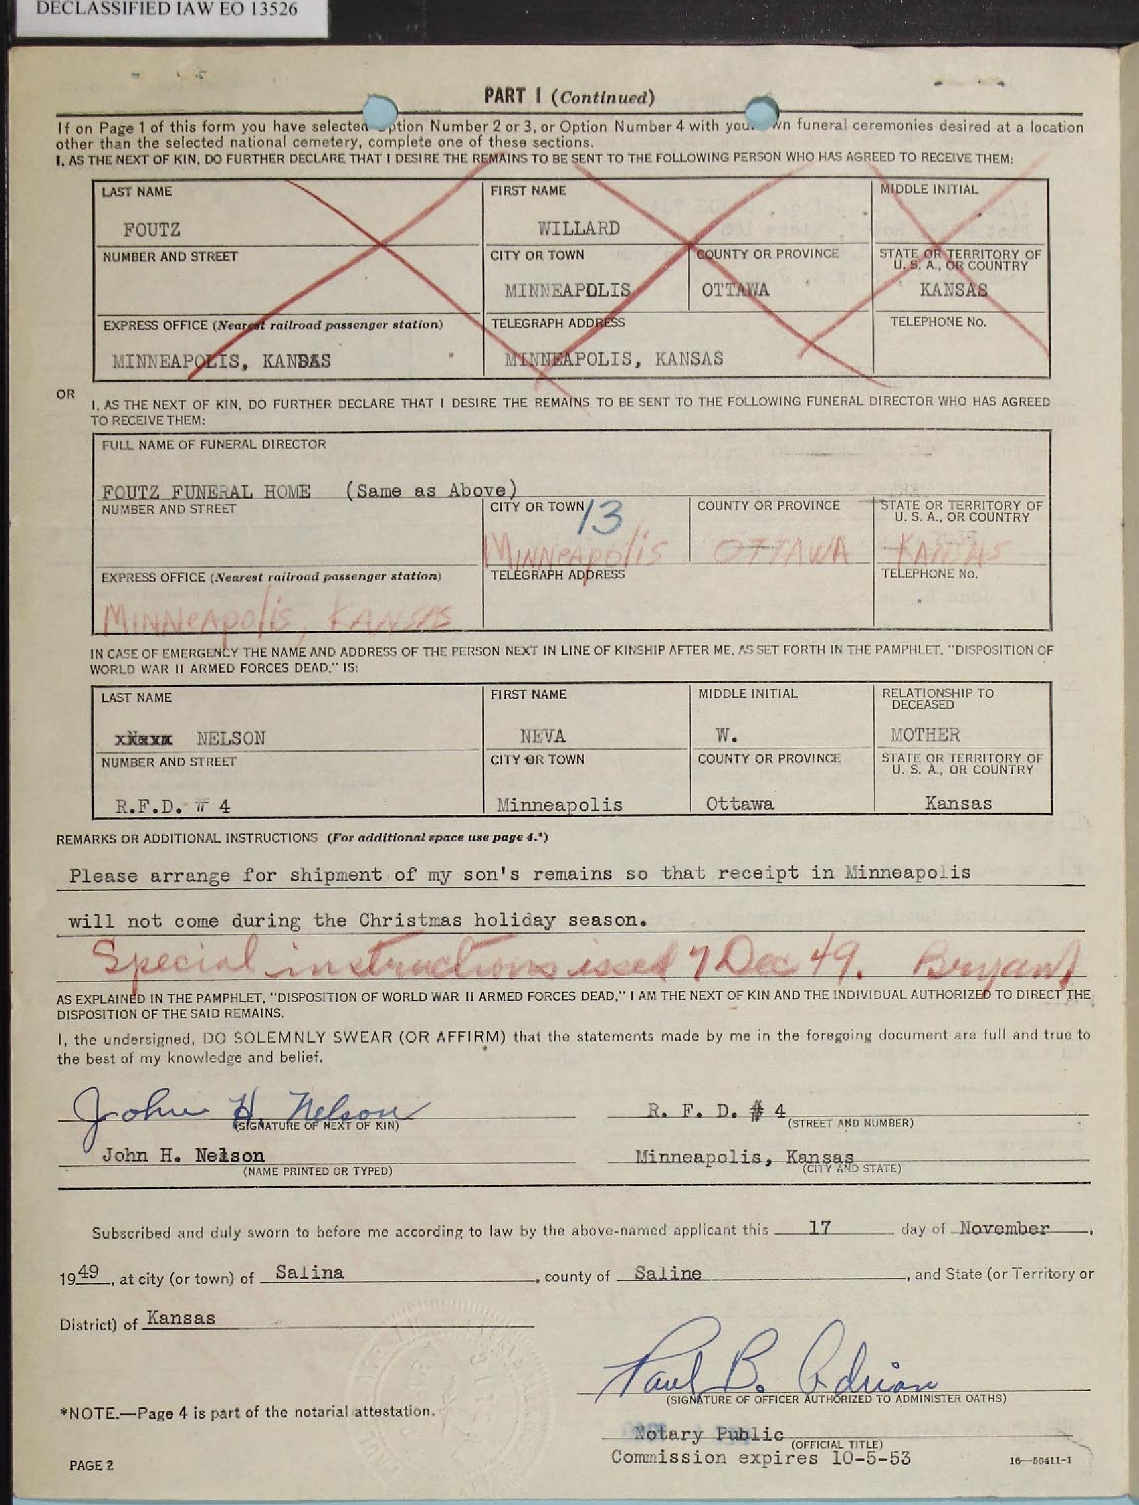 DECLASSIFIED IAW EO 13526
PART I (Continued)
If on Page 1 of this form you have selected option Number 2 or 3, or Option Number 4 with your own funeral ceremonies desired at a location
other than the selected national cemetery, complete one of these sections.
I, AS THE NEXT OF KIN, DO FURTHER DECLARE THAT I DESIRE THE REMAINS TO BE SENT TO THE FOLLOWING PERSON WHO HAS AGREED TO RECEIVE THEM:
LAST NAME FIRST NAME MIDDLE INITIAL
FOUTZ WILLARD
NUMBER AND STREET CITY OR TOWN COUNTY OR PROVINCE STATE OR TERRITORY OF
U. S. A., OR COUNTRY
MINNEAPOLIS OTTAWA KANSAS
EXPRESS OFFICE (Nearest railroad passenger station) TELEGRAPH ADDRESS TELEPHONE No.
MINNEAPOLIS, KANSAS MINNEAPOLIS, KANSAS
OR
I, AS THE NEXT OF KIN, DO FURTHER DECLARE THAT I DESIRE THE REMAINS TO BE SENT TO THE FOLLOWING FUNERAL DIRECTOR WHO HAS AGREED
TO RECEIVE THEM:
FULL NAME OF FUNERAL DIRECTOR
FOUTZ FUNERAL HOME (Same as Above)
NUMBER AND STREET CITY OR TOWN 13 COUNTY OR PROVINCE STATE OR TERRITORY OF
U. S. A., OR COUNTRY
MINNEAPOLIS OTTAWA KANSAS
EXPRESS OFFICE (Nearest railroad passenger station) TELEGRAPH ADDRESS TELEPHONE No.
MINNEAPOLIS, KANSAS
IN CASE OF EMERGENCY THE NAME AND ADDRESS OF THE PERSON NEXT IN LINE OF KINSHIP AFTER ME, AS SET FORTH IN THE PAMPHLET, "DISPOSITION OF
WORLD WAR II ARMED FORCES DEAD," IS:
LAST NAME FIRST NAME MIDDLE INITIAL RELATIONSHIP TO
DECEASED
NELSON NEVA W. MOTHER
NUMBER AND STREET CITY OR TOWN COUNTY OR PROVINCE STATE OR TERRITORY OF
U. S. A., OR COUNTRY
R.F.D. # 4 Minneapolis Ottawa Kansas
REMARKS OR ADDITIONAL INSTRUCTIONS (For additional space use page 4.*)
Please arrange for shipment of my son's remains so that receipt in Minneapolis
will not come during the Christmas holiday season.
Special instructions issed 7 Dec 49. Bryant
AS EXPLAINED IN THE PAMPHLET, "DISPOSITION OF WORLD WAR II ARMED FORCES DEAD," I AM THE NEXT OF KIN AND THE INDIVIDUAL AUTHORIZED TO DIRECT THE
DISPOSITION OF THE SAID REMAINS.
I, the undersigned, DO SOLEMNLY SWEAR (OR AFFIRM) that the statements made by me in the foregoing document are full and true to
the best of my knowledge and belief.
John H. Nelson R. F. D. # 4
(SIGNATURE OF NEXT OF KIN) (STREET AND NUMBER)
John H. Nelson Minneapolis, Kansas
(NAME PRINTED OR TYPED) (CITY AND STATE)
Subscribed and duly sworn to before me according to law by the above-named applicant this 17 day of November,
1949, at city (or town) of Salina, county of Saline, and State (or Territory or
District) of Kansas
Paul B. Adrian
(SIGNATURE OF OFFICER AUTHORIZED TO ADMINISTER OATHS)
*NOTE.—Page 4 is part of the notarial attestation.
Notary Public
(OFFICIAL TITLE)
Commission expires 10-5-53
PAGE 2 16—50411-1